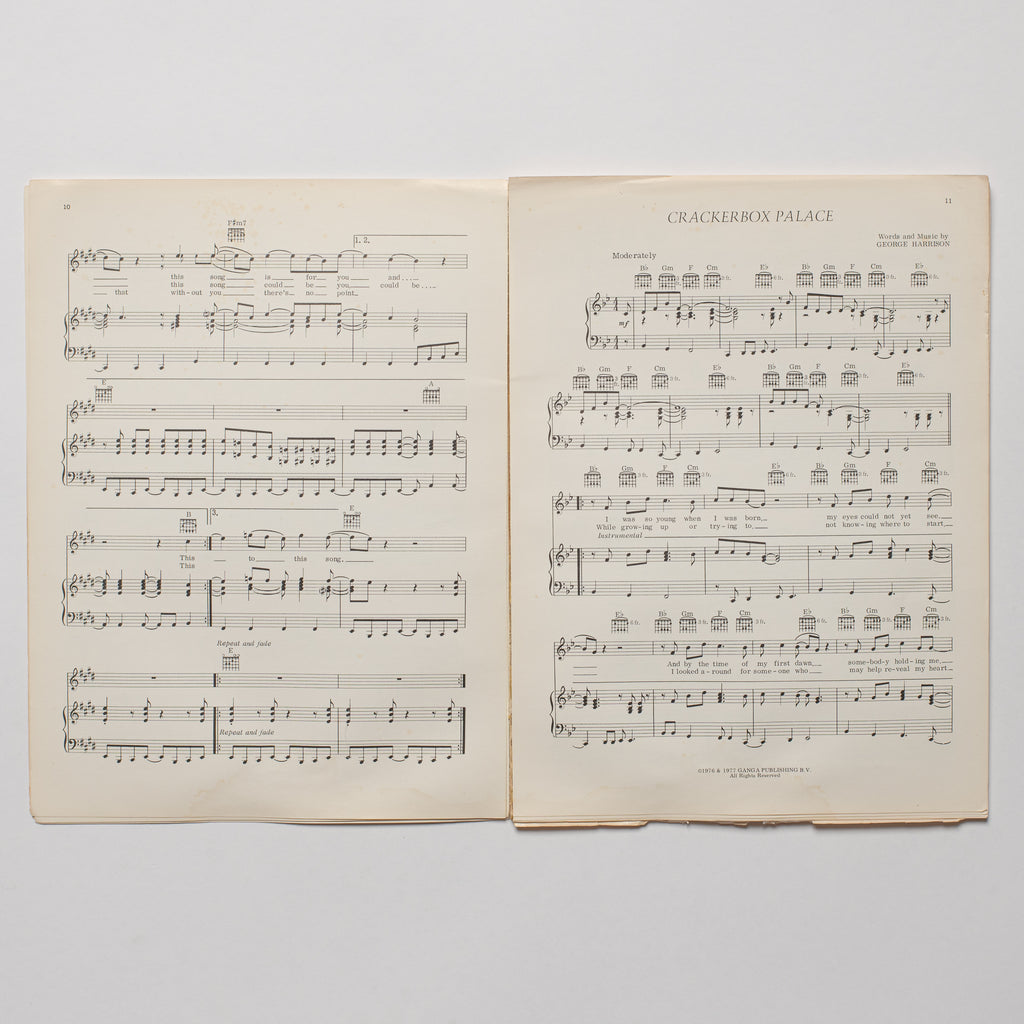 10
F#m7
1. 2.
this song is for you and....
this song could be you could be....
that with-out you there's no point
E A
B 3. E
This to this song,
This
Repeat and fade
E
Repeat and fade
11
CRACKERBOX PALACE
Words and Music by
GEORGE HARRISON
Moderately
B♭ Gm F Cm E♭ B♭ Gm F Cm E♭
mf
B♭ Gm F Cm E♭ B♭ Gm F Cm E♭
B♭ Gm F Cm E♭ B♭ Gm F Cm
I was so young when I was born, my eyes could not yet see.
While grow-ing up or try-ing to, not know-ing where to start
Instrumental
E♭ B♭ Gm F Cm E♭ B♭ Gm F Cm
And by the time of my first dawn, some-bod-y hold-ing me,
I looked a-round for some-one who may help re-veal my heart
©1976 & 1977 GANGA PUBLISHING B.V.
All Rights Reserved